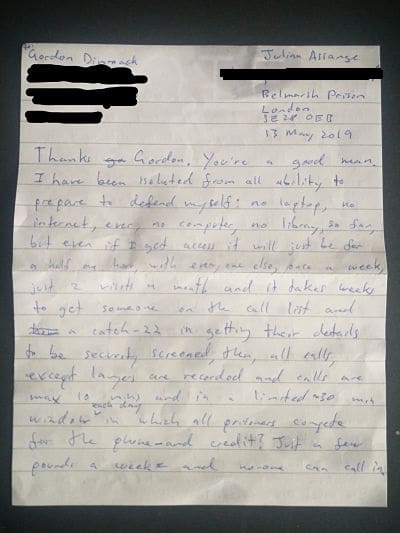 to: Gordon Dimmack
Julian Assange
Belmarsh Prison
London
SE28 0EB
13 May 2019
Thanks Gordon. You're a good man.
I have been isolated from all ability to
prepare to defend myself: no laptop, no
internet, ever, no computer, no library, so far,
but even if I get access it will just be for
a half an hour, with everyone else, once a week,
just 2 visits a month and it takes weeks
to get someone on the call list and
a catch-22 in getting their details
to be security screened, then, all calls,
except lawyer are recorded and calls are
max 10 mins and in a limited ~30 min
window each day in which all prisoners compete
for the phone - and credit? Just a few
pounds a week - and no-one can call in.